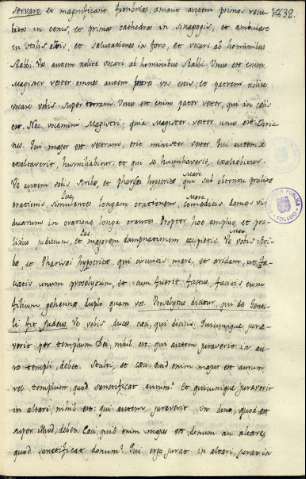 et magnificant fimbrias amant autem primos recu-
bitus in cenis, et primas cathedras in sinagogis, et
et salutationes in foro, et vocari ab hominibus
Rabbi. Vos autem nolite vocari ab hominibus Rabbi. Unus est enim
Magister vester omnes autem vos estis, et patrem nolite
vocare vobis super terram. Unus est enim pater vester, qui in celis
est. Nec vocemini Magistri: quia Magister vester unus est
Qui major est vestrum, erit minister vester. Qui autem se
exaltaverit, humiliabitur, et qui se humiliaverit, exaltabitur.
Ve autem vobis Scribe, et Pharisei hypocrite, qui sub
orationis longam orationem, domos vi-
duarum in oratione longa orantes Propter hoc et
judicium, et majorem accipietis. Ve vobis Scri-
be, et Pharisei hypocrite, qui circuitis mare, et aridam, ut fa-
ciatis unum proselytum, et cum fuerit factus, facitis eum
filium gehenne duplo quam vos. dicitur, qui de
fit Judeus. Ve vobis duces ceci, qui dicitis: Quicumque jura-
verit per templum Dei, nihil est, qui autem juraverit in au-
ro templi debet. Stulti, et ceci quid enim majus est aurum
vel templum quod sanctificat aurum? et quicumque juraverit
in altari, nihil est: qui autem juraverit in dono, quod est
super illud debet. Ceci, quid enim majus est donum, an altare,
quod sanctificat donum? Qui ergo jurat in altari, jurat in